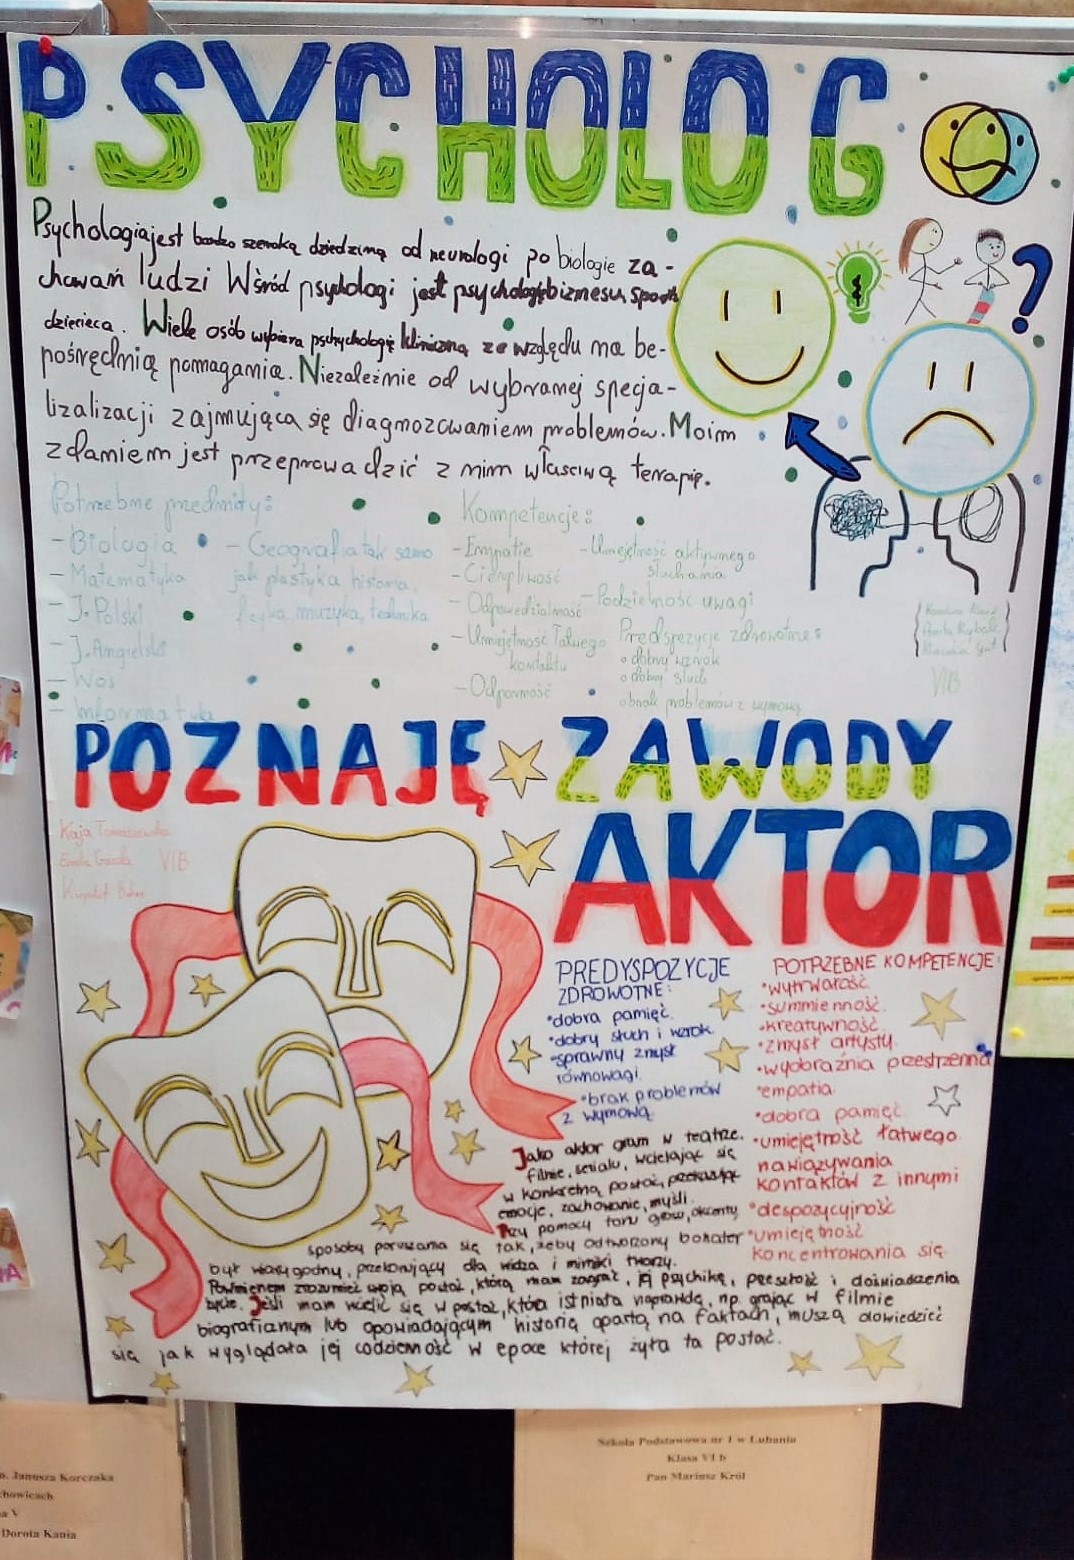 PSYCHOLOG
Psychologia jest bardzo szeroką dziedziną od neurologi po biologie za-
chowań ludzi Wśród psychologi jest psychologia biznesu, sportu
dziecięca. Wiele osób wybiera psychologię kliniczną ze względu na be-
pośrednią pomagania. Niezależnie od wybranej specja-
lizalizacji zajmująca się diagnozowaniem problemów. Moim
zdaniem jest przeprowadzić z nim właściwą terapię.
?
Potrzebne przedmioty:
- Biologia
- Matematyka
- J. Polski
- J. Angielski
- Wos
- Informatyka
- Geografia tak samo
jak plastyka historia,
fizyka muzyka, technika
Kompetencje:
- Empatie
- Cierpliwość
- Odpowedzialność
- Umiejętność łatwego
kontaktu
- Odporność
- Umiejętność aktywnego
słuchania
- Podzielność uwagi
Predspozycje zdrowotne:
dobry wzrok
dobry słuch
brak problemów z wymową
VIB
POZNAJĘ ZAWODY
Kaja Tomaszewska
VIB
AKTOR
PREDYSPOZYCJE
ZDROWOTNE:
•dobra pamięć.
•dobry słuch i wzrok.
•sprawny zmysł
równowagi.
•brak problemów
z wymową.
POTRZEBNE KOMPETENCJE:
•wytrwałość.
•summienność.
•kreatywność.
•zmysł artysty.
•wyobraźnia przestrzenna
•empatia.
•dobra pamięć.
•umiejętność łatwego
nawiązywania
kontaktów z innymi
•despozycyjność
•umiejętność
koncentrowania się.
Jako aktor gram w teatrze.
filmie, serialu, wcielając się
w konkretną postać, przekazując
emocje, zachowanie, myśli.
Przy pomocy tonu głosu, akcentu,
sposoby poruszania się tak, żeby odtworzony bohater
był wiarygodny, przekonujący dla widza i mimiki twarzy.
Powinienem zrozumieć swoją postać, którą mam zagrać, jej psychikę, przeszłość i doświadczenia
życie. Jeśli mam wcielić się w postać, która istniała naprawdę, np. grając w filmie
biograficznym lub opowiadającym historią opartą na faktach, muszą dowiedzieć
się jak wyglądała jej codzienność w epoce której żyła ta postać.
Szkoła Podstawowa nr 1 w Lubaniu
Klasa VI b
Pan Mariusz Król
Janusza Korczaka
Dorota Kania